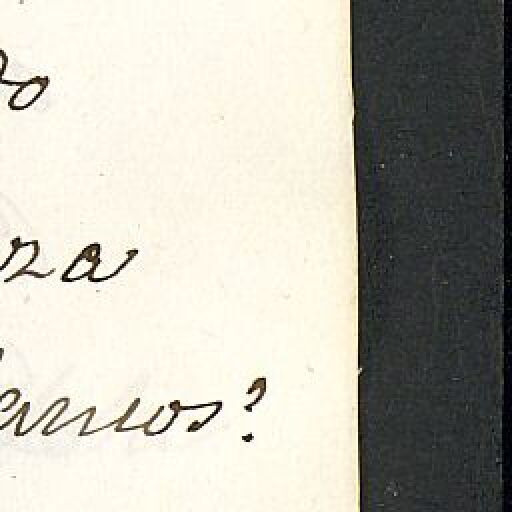 do
za
amos?